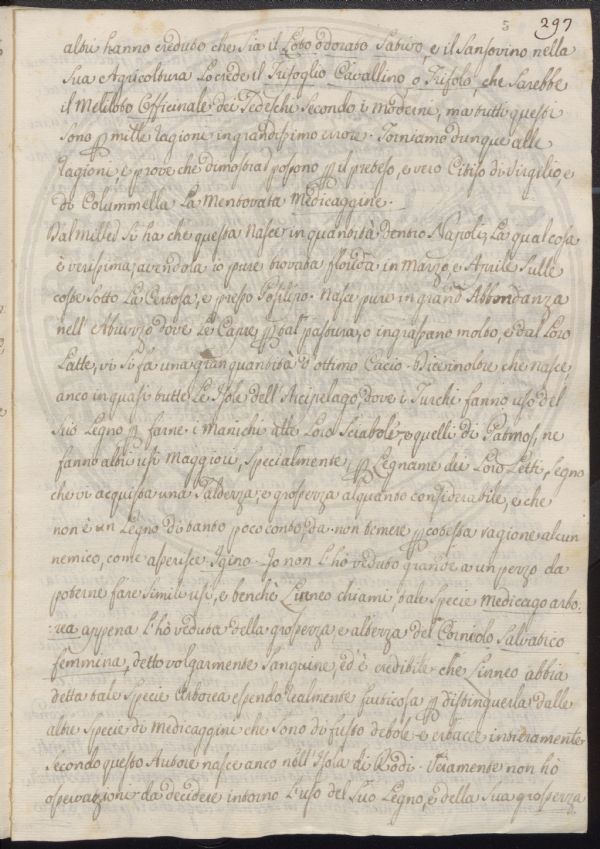 5 297
altri hanno creduto che sia il Loto odorato Sativo, e il Sansovino nella
sua Agricoltura lo crede il Trifoglio Cavallino, o Trifolo, che sarebbe
il Meliloto Officinale dei Tedeschi secondo i moderni, ma tutti questi
sono p mille ragioni in grandissimo errore. Torniamo dunque alle
ragioni, e prove che dimostrar possono p il preteso, e vero Citiso di Virgilio, e
di Columnella la mentovata Medicaggine.
Dal Milled si ha che questa nasce in quantità dentro Napoli, la qual cosa
è verissima, avendola io pure trovata florida in Marzo, e Aprile sulle
coste sotto la Certosa, e presso Posilipo. Nasce pure in grand' Abbondanza
nell' Abruzzo dove le Capre p tal pastura, o ingrassano molto, e dal loro
Latte, vi si fa una gran quantità d' ottimo Cacio. Dice inoltre che nasce,
anco in quasi tutte le Isole dell' Arcipelago, dove i Turchi fanno uso del
suo Legno p farne i manichi alle loro Sciabole, e quelli di Patmos, ne
fanno altri usi maggiori, specialmente p Legname dei loro Letti, segno
che vi acquista una saldezza, e grossezza alquanto considerabile, e che
non è un Legno di tanto poco conto, da non temere p cotesta ragione alcun
nemico, come asserisce Igino. Io non l' hò veduto grande a un pezzo da
poterne fare simili usi, e benchè Linneo chiami, tale specie Medicago arbo-
rea appena l' hò veduta della grossezza e altezza del Corniolo Salvatico
femmina, detto volgarmente Sanguine, ed' è credibile che Linneo abbia
detta tale specie Arborea essendo realmente fruticosa p distinguerla dalle
altre specie di Medicaggini che sono di fusto debole e erbacee intieramente
secondo questo Autore nasce anco nell' Isola di Rodi. Veramente non hò
osservazione da decidere intorno l' uso del suo Legno, e della sua grossezza